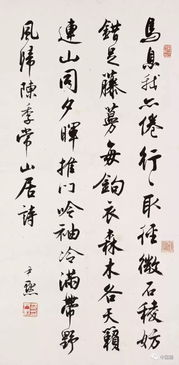 馬息我亦倦行〻取徑微石稜妨
錯足藤蔓每鉤衣森木各天籟
連山同夕暉推門吟袖冷滿帶野
風歸陳季常山居詩
尹默